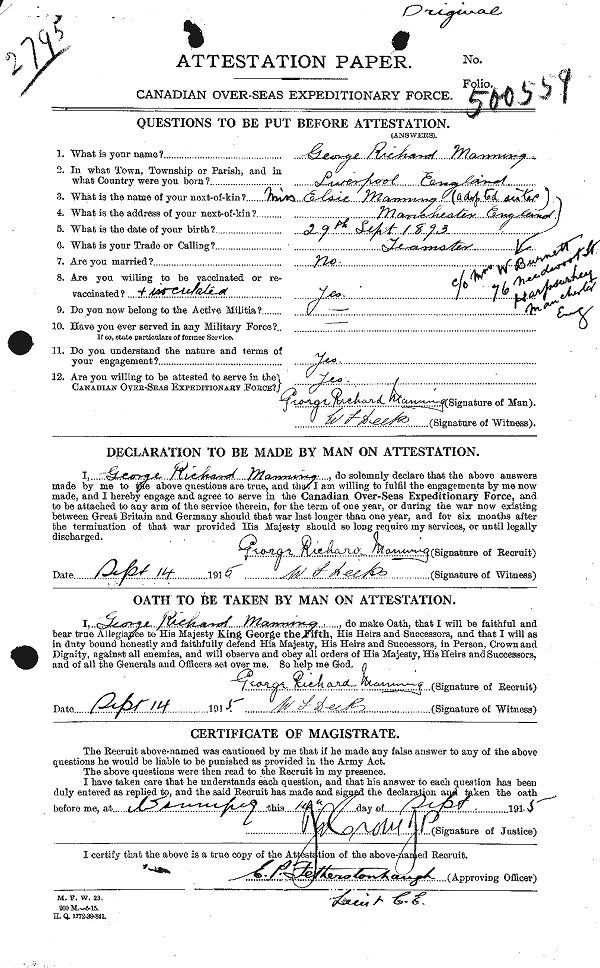 Original
2795
ATTESTATION PAPER.
No.
Folio.
CANADIAN OVER-SEAS EXPEDITIONARY FORCE.
500559
QUESTIONS TO BE PUT BEFORE ATTESTATION.
(ANSWERS).
1. What is your name? George Richard Manning
2. In what Town, Township or Parish, and in
what Country were you born? Liverpool England
3. What is the name of your next-of-kin? Miss Elsie Manning (adopted sister)
4. What is the address of your next-of-kin? Manchester England
c/o Mrs W Burnett
76 Needwood St.
Harpurhey
Manchester
Eng
5. What is the date of your birth? 29th Sept 1893
6. What is your Trade or Calling? Teamster
7. Are you married? No.
8. Are you willing to be vaccinated or re-
vaccinated? + inoculated Yes.
9. Do you now belong to the Active Militia? —
10. Have you ever served in any Military Force? —
If so, state particulars of former Service.
11. Do you understand the nature and terms of
your engagement? Yes
12. Are you willing to be attested to serve in the
CANADIAN OVER-SEAS EXPEDITIONARY FORCE? Yes.
George Richard Manning (Signature of Man).
W L Deeks (Signature of Witness).
DECLARATION TO BE MADE BY MAN ON ATTESTATION.
I, George Richard Manning, do solemnly declare that the above answers
made by me to the above questions are true, and that I am willing to fulfil the engagements by me now
made, and I hereby engage and agree to serve in the Canadian Over-Seas Expeditionary Force, and
to be attached to any arm of the service therein, for the term of one year, or during the war now existing
between Great Britain and Germany should that war last longer than one year, and for six months after
the termination of that war provided His Majesty should so long require my services, or until legally
discharged.
George Richard Manning (Signature of Recruit)
Date Sept 14 1915 W L Deeks (Signature of Witness)
OATH TO BE TAKEN BY MAN ON ATTESTATION.
I, George Richard Manning, do make Oath, that I will be faithful and
bear true Allegiance to His Majesty King George the Fifth, His Heirs and Successors, and that I will as
in duty bound honestly and faithfully defend His Majesty, His Heirs and Successors, in Person, Crown and
Dignity, against all enemies, and will observe and obey all orders of His Majesty, His Heirs and Successors,
and of all the Generals and Officers set over me. So help me God.
George Richard Manning (Signature of Recruit)
Date Sept 14 1915 W L Deeks (Signature of Witness)
CERTIFICATE OF MAGISTRATE.
The Recruit above-named was cautioned by me that if he made any false answer to any of the above
questions he would be liable to be punished as provided in the Army Act.
The above questions were then read to the Recruit in my presence.
I have taken care that he understands each question, and that his answer to each question has been
duly entered as replied to, and the said Recruit has made and signed the declaration and taken the oath
before me, at Winnipeg this 14th day of Sept 1915
JP (Signature of Justice)
I certify that the above is a true copy of the Attestation of the above-named Recruit.
C. P. Fetherstonhaugh (Approving Officer)
Lieut C.E.
M. F. W. 23.
200 M.—6-15.
H. Q. 1772-39-841.